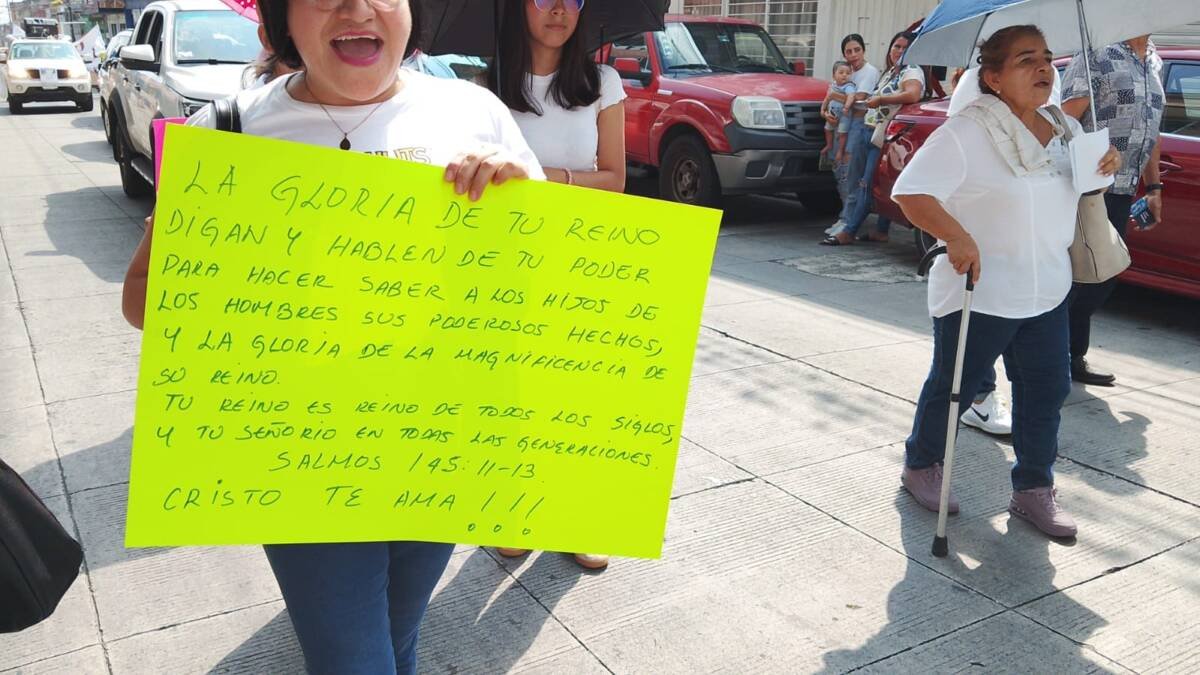 LA GLORIA DE TU REINO
DIGAN Y HABLEN DE TU PODER
PARA HACER SABER A LOS HIJOS DE
LOS HOMBRES SUS PODEROSOS HECHOS,
Y LA GLORIA DE LA MAGNIFICENCIA DE
SU REINO.
TU REINO ES REINO DE TODOS LOS SIGLOS,
Y TU SEÑORIO EN TODAS LAS GENERACIONES.
SALMOS 145:11-13
CRISTO TE AMA !!!